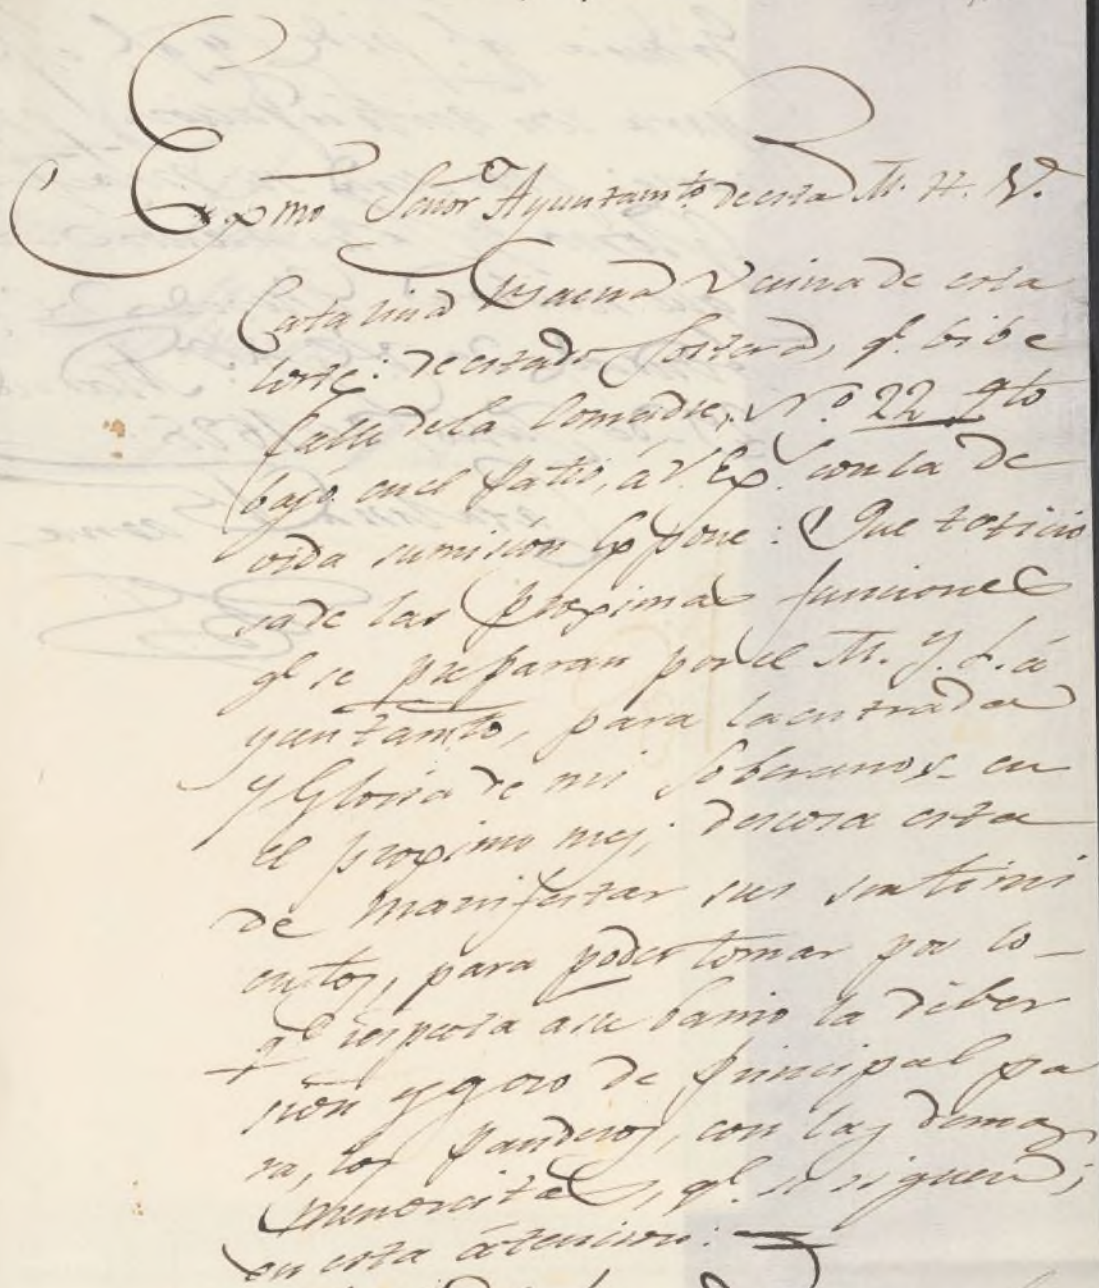 Exmo Señor Ayuntamto de esta M. H. V.
Catalina Baena Vecina de esta
Corte: de estado soltera, qe. bibe
Calle de la Comadre, Nº 22 qto
bajo en el patio, á V. Exª. con la de
vida sumisión Expone: Que noticio
sa de las proximas funciones
qe se preparan por el M. Y. L. á
yuntamto, para la entrada
y Gloria de mis Soberanos en
el proximo mes; deseosa esta
de manifestar sus sentimi
entos, para poder tomar por lo
qe respecta a su barrio la diber
sión y gozo de principal pa
ra, los panderos, con las demas
menorcitas, qe. se siguen;
en esta átencion: